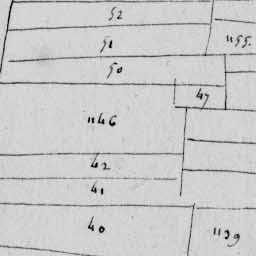 52
51
1155.
50
47
1146
42
41
40
1139